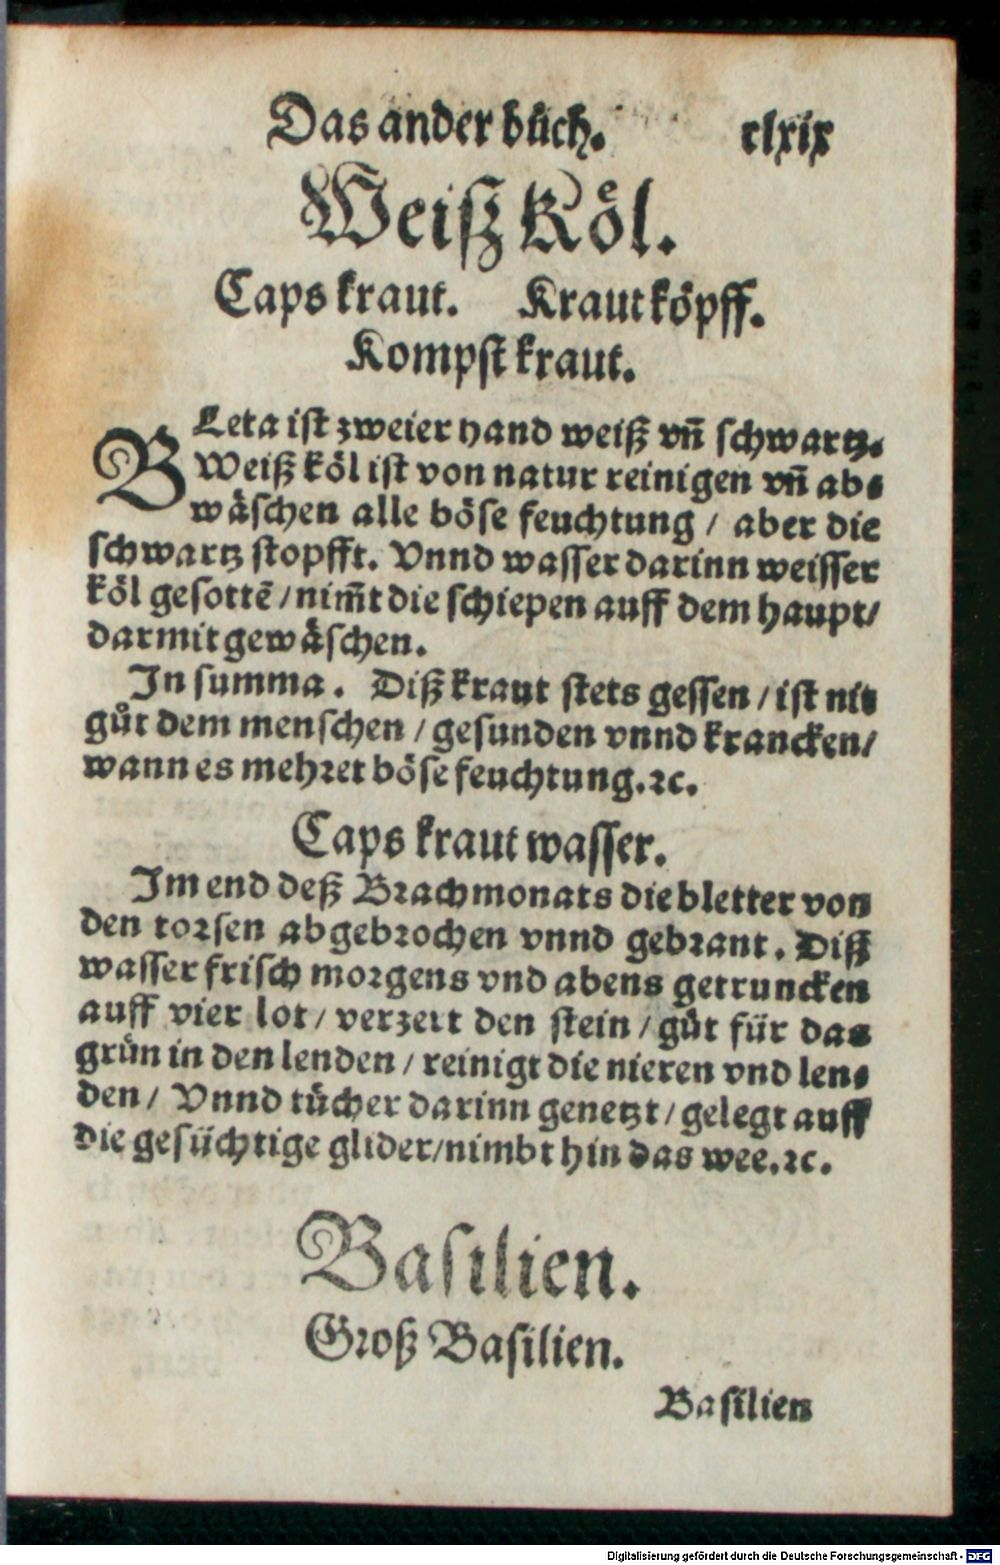 Das ander bůch. clxix
Weiß Koͤl.
Caps kraut. Kraut koͤpff.
Kompst kraut.
BLeta ist zweier hand weiß vñ schwartz.
Weiß koͤl ist von natur reinigen vñ ab⸗
waͤschen alle boͤse feuchtung / aber die
schwartz stopfft. Vnnd wasser darinn weisser
koͤl gesottē / nim̄t die schiepen auff dem haupt /
darmit gewaͤschen.
In summa. Diß kraut stets gessen / ist nit
gůt dem menschen / gesunden vnnd krancken /
wann es mehret boͤse feuchtung. ꝛc.
Caps kraut wasser.
Im end deß Brachmonats die bletter von
den torsen abgebrochen vnnd gebrant. Diß
wasser frisch morgens vnd abens getruncken
auff vier lot / verzert den stein / gůt für das
grün in den lenden / reinigt die nieren vnd len⸗
den / Vnnd tücher darinn genetzt / gelegt auff
die gesüchtige glider / nimbt hin das wee. ꝛc.
Basilien.
Groß Basilien.
Basilien
Digitalisierung gefördert durch die Deutsche Forschungsgemeinschaft - DFG